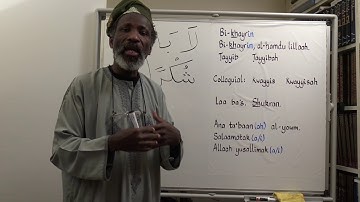 Bi-khayrin
Bi-khayrin, al-hamdu lillaah.
Tayyib Tayyibah
Colloquial: Kwayyis Kwayyisah
Laa ba's. Shukran.
لَا بَأ
شُكْرً
Ana ta'baan (ah) al-yowm.
Salaamatak (a/i)
Allaah yusallimak (a/i)